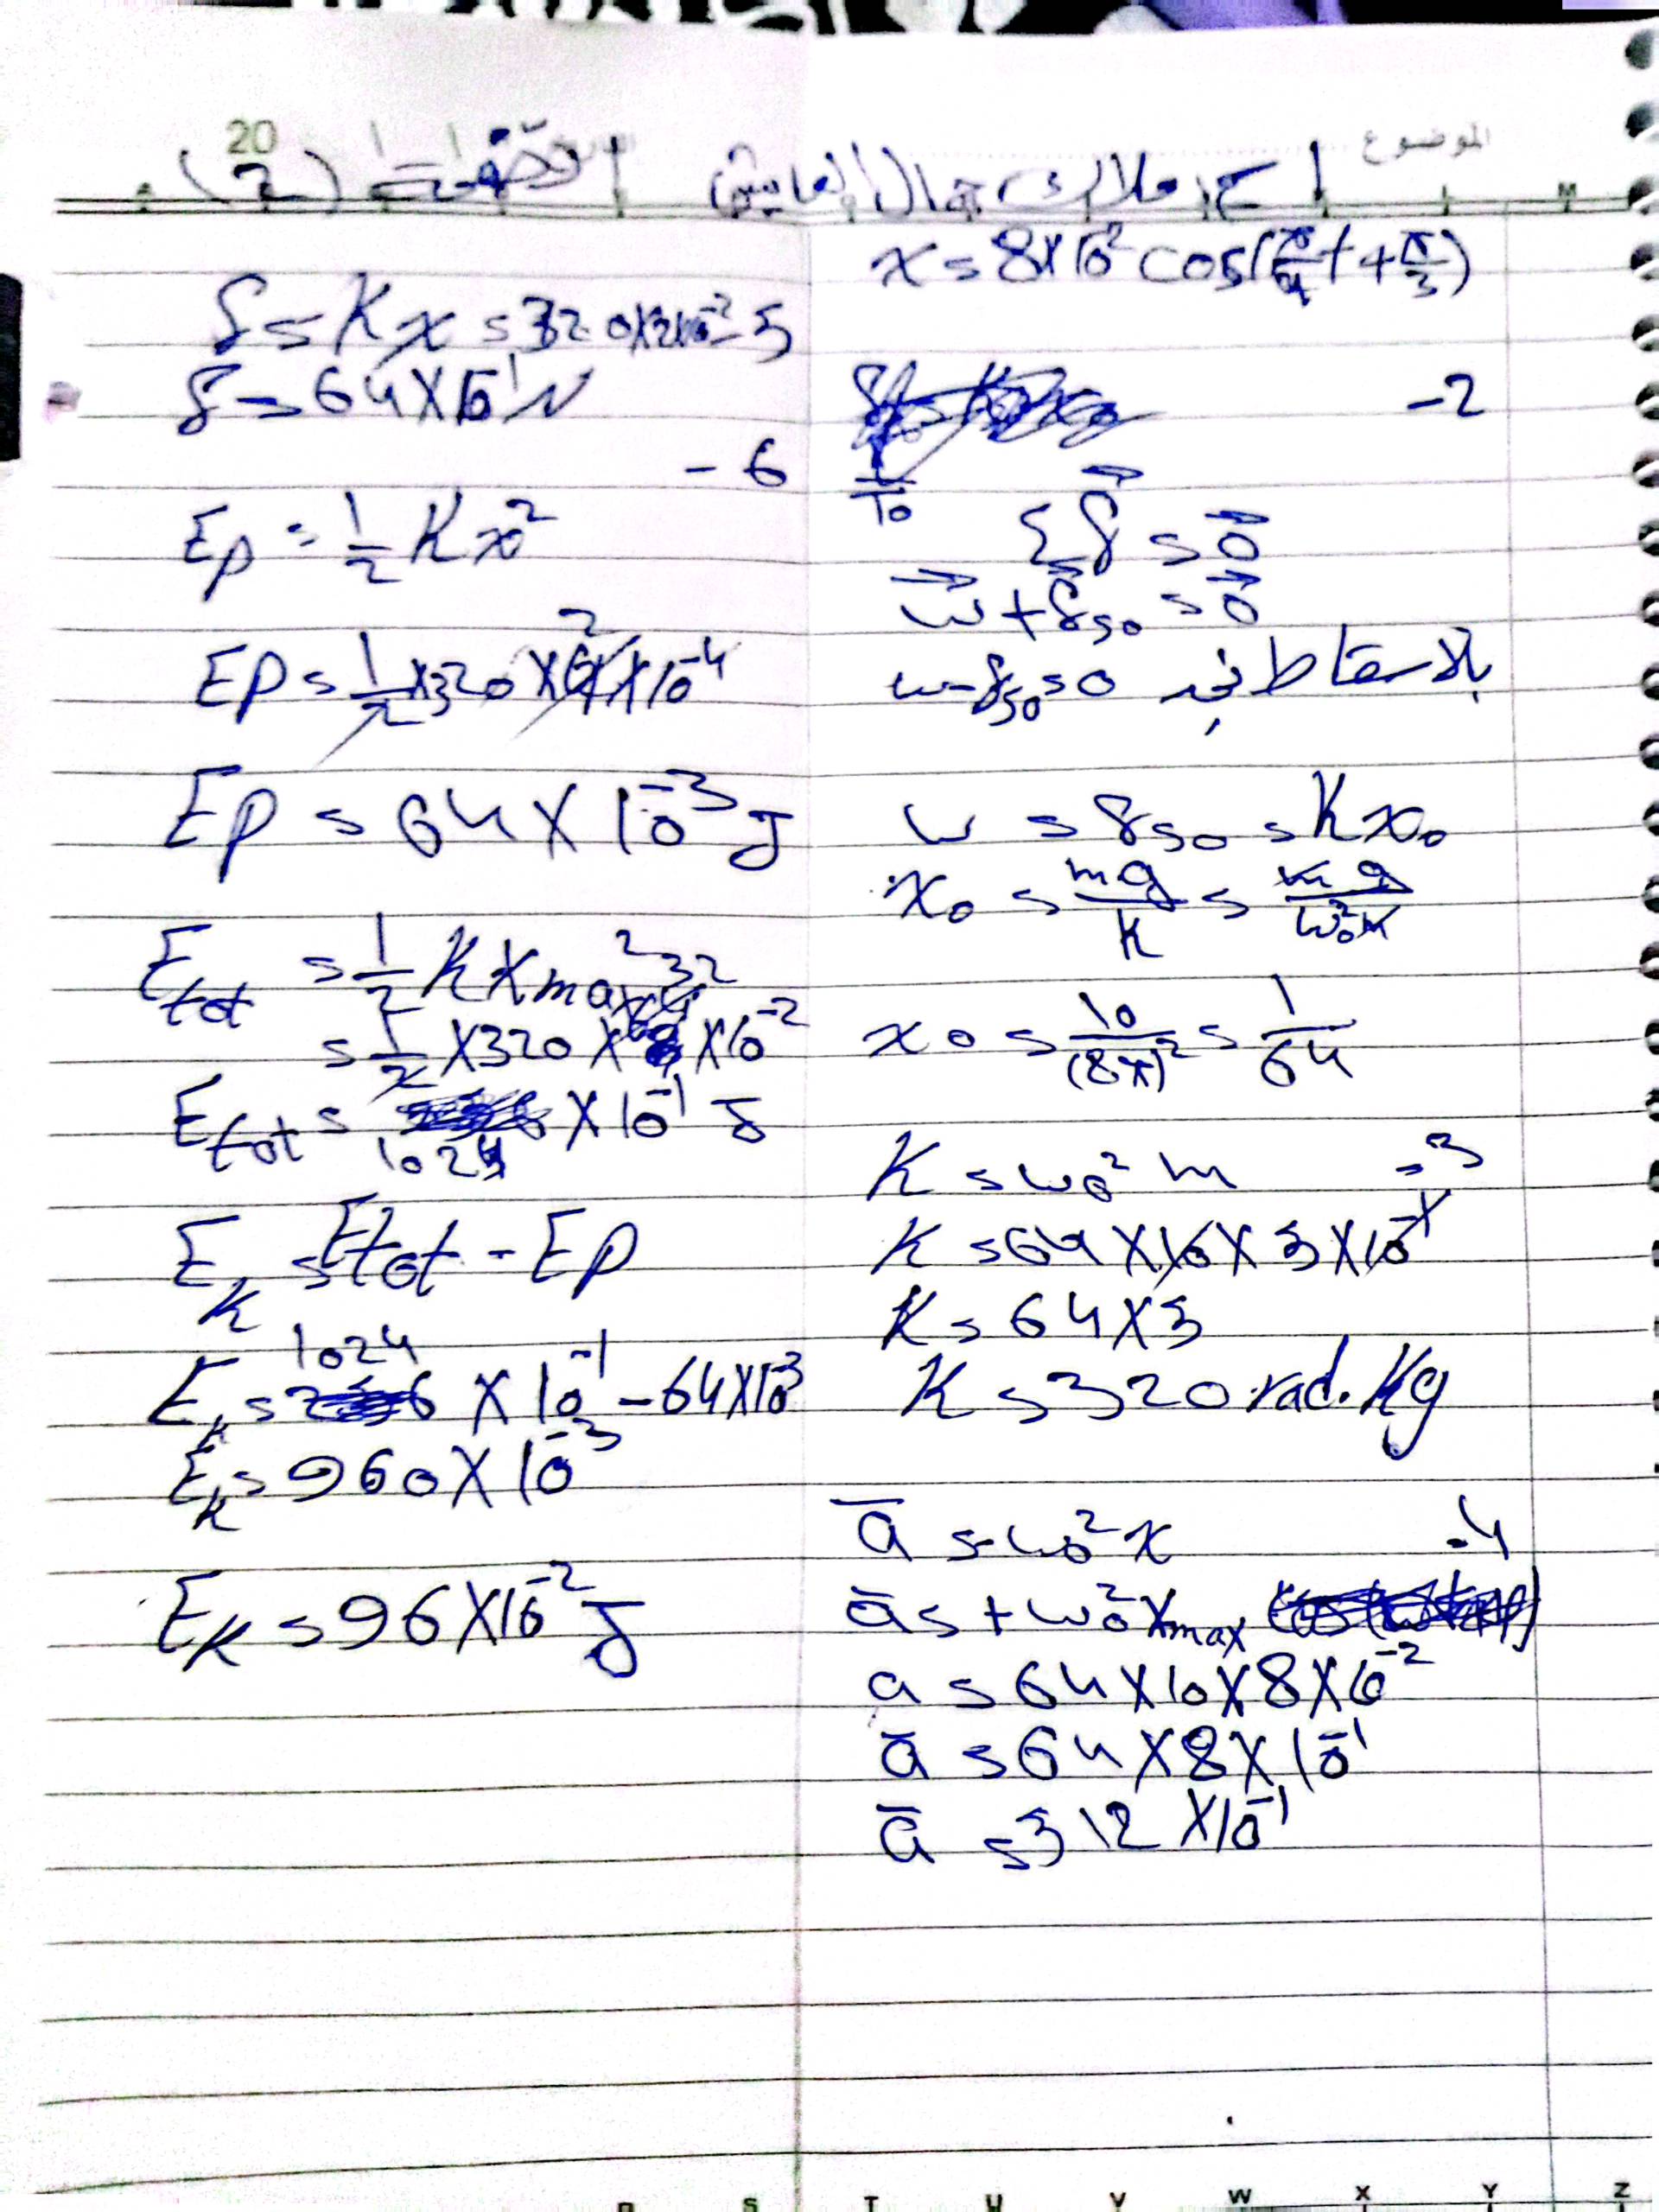 الموضوع
20
ح. ملاك جمال العايش (2)
x = 8×10⁻² cos(π/4 t + π/3)
-2
1/T₀
Σf⃗ = 0⃗
w⃗ + f⃗s₀ = 0⃗
بالاسقاط نجد w - fs₀ = 0
w = fs₀ = Kx₀
x₀ = mg/K = mg/ω₀²m
x₀ = 10/(8π)² = 1/64
K = ω₀² m -3
K = 64×10×5×10⁻¹
K = 64×5
K = 320 rad.Kg
a̅ = -ω₀² x -4
a̅ = +ω₀² Xmax
a = 64×10×8×10⁻²
a̅ = 64×8×10⁻¹
a̅ = 312×10⁻¹
f = Kx = 320×2×10⁻² -5
f = 64×10⁻¹ N
-6
Ep = 1/2 Kx²
Ep = 1/2 ×320×4×10⁻⁴
Ep = 64×10⁻³ J
Etot = 1/2 K Xmax²
= 1/2 ×320×64×10⁻²
Etot = 1024×10⁻¹ J
Ek = Etot - Ep
Ek = 1024×10⁻¹ - 64×10⁻³
Ek = 960×10⁻³
Ek = 96×10⁻² J
S T U V W X Y Z